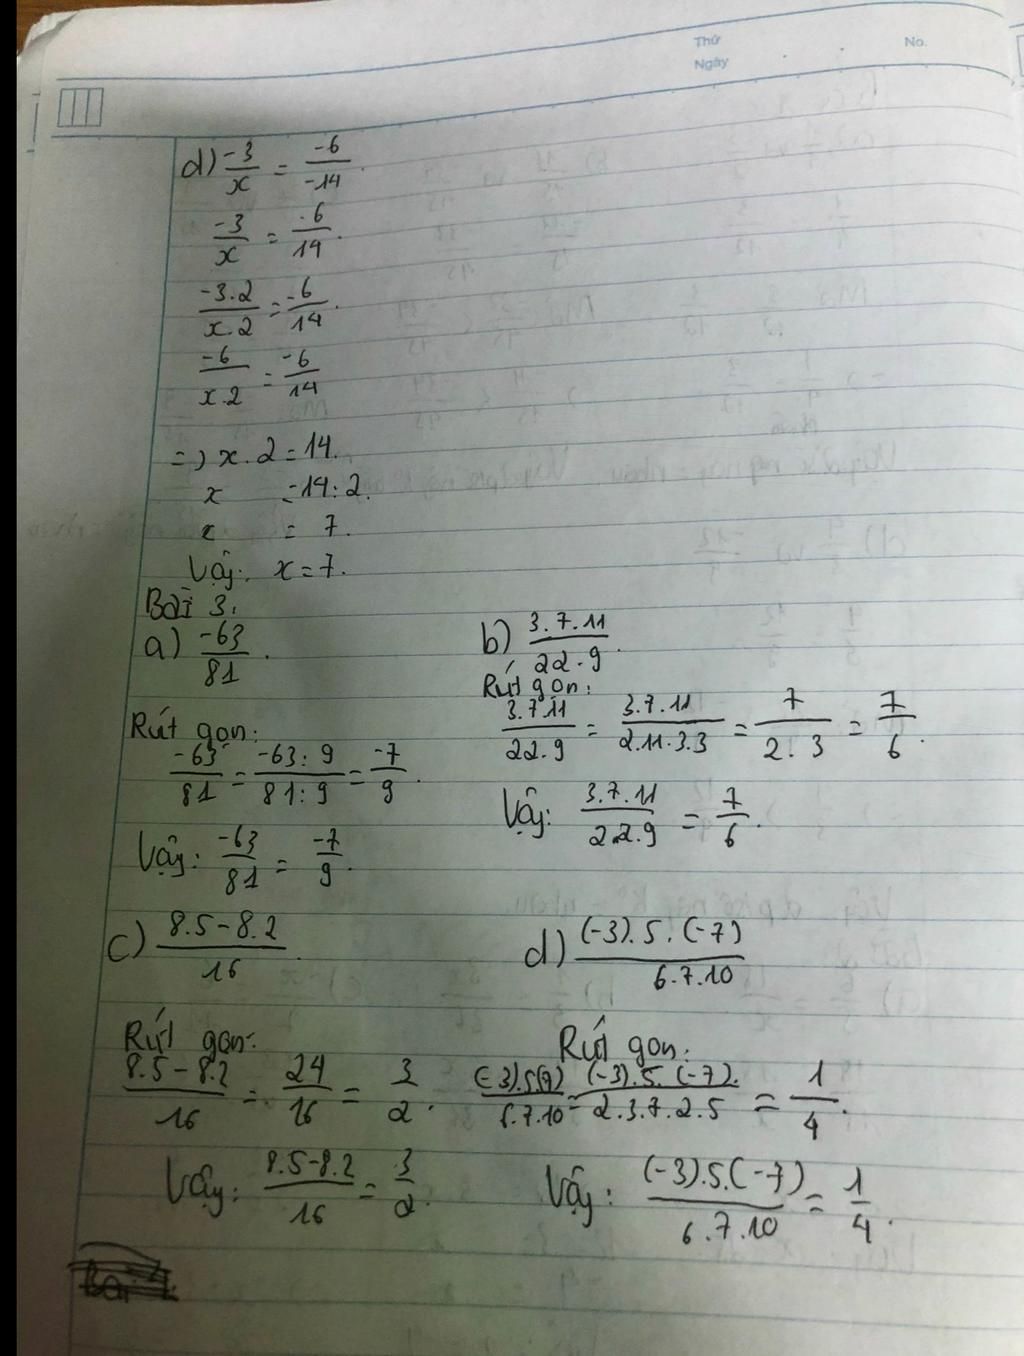 Thứ
No.
Ngày
d) -3/x = -6/-14.
-3/x = -6/14.
-3.2/x.2 = -6/14.
-6/x.2 = -6/14
=) x.2 = 14.
x = 14:2.
x = 7.
Vậy: x = 7.
Bài 3:
a) -63/81.
b) 3.7.11/22.9.
Rút gọn:
-63/81 = -63:9/81:9 = -7/9.
Vậy: -63/81 = -7/9.
Rút gọn:
3.7.11/22.9 = 3.7.11/2.11.3.3 = 7/2.3 = 7/6.
Vậy: 3.7.11/22.9 = 7/6.
c) 8.5-8.2/16.
d) (-3).5.(-7)/6.7.10
Rút gọn:
8.5-8.2/16 = 24/16 = 3/2.
Vậy: 8.5-8.2/16 = 3/2.
Rút gọn:
(-3).5(-7)/6.7.10 = (-3).5.(-7)./2.3.7.2.5 = 1/4.
Vậy: (-3).5.(-7)/6.7.10 = 1/4.